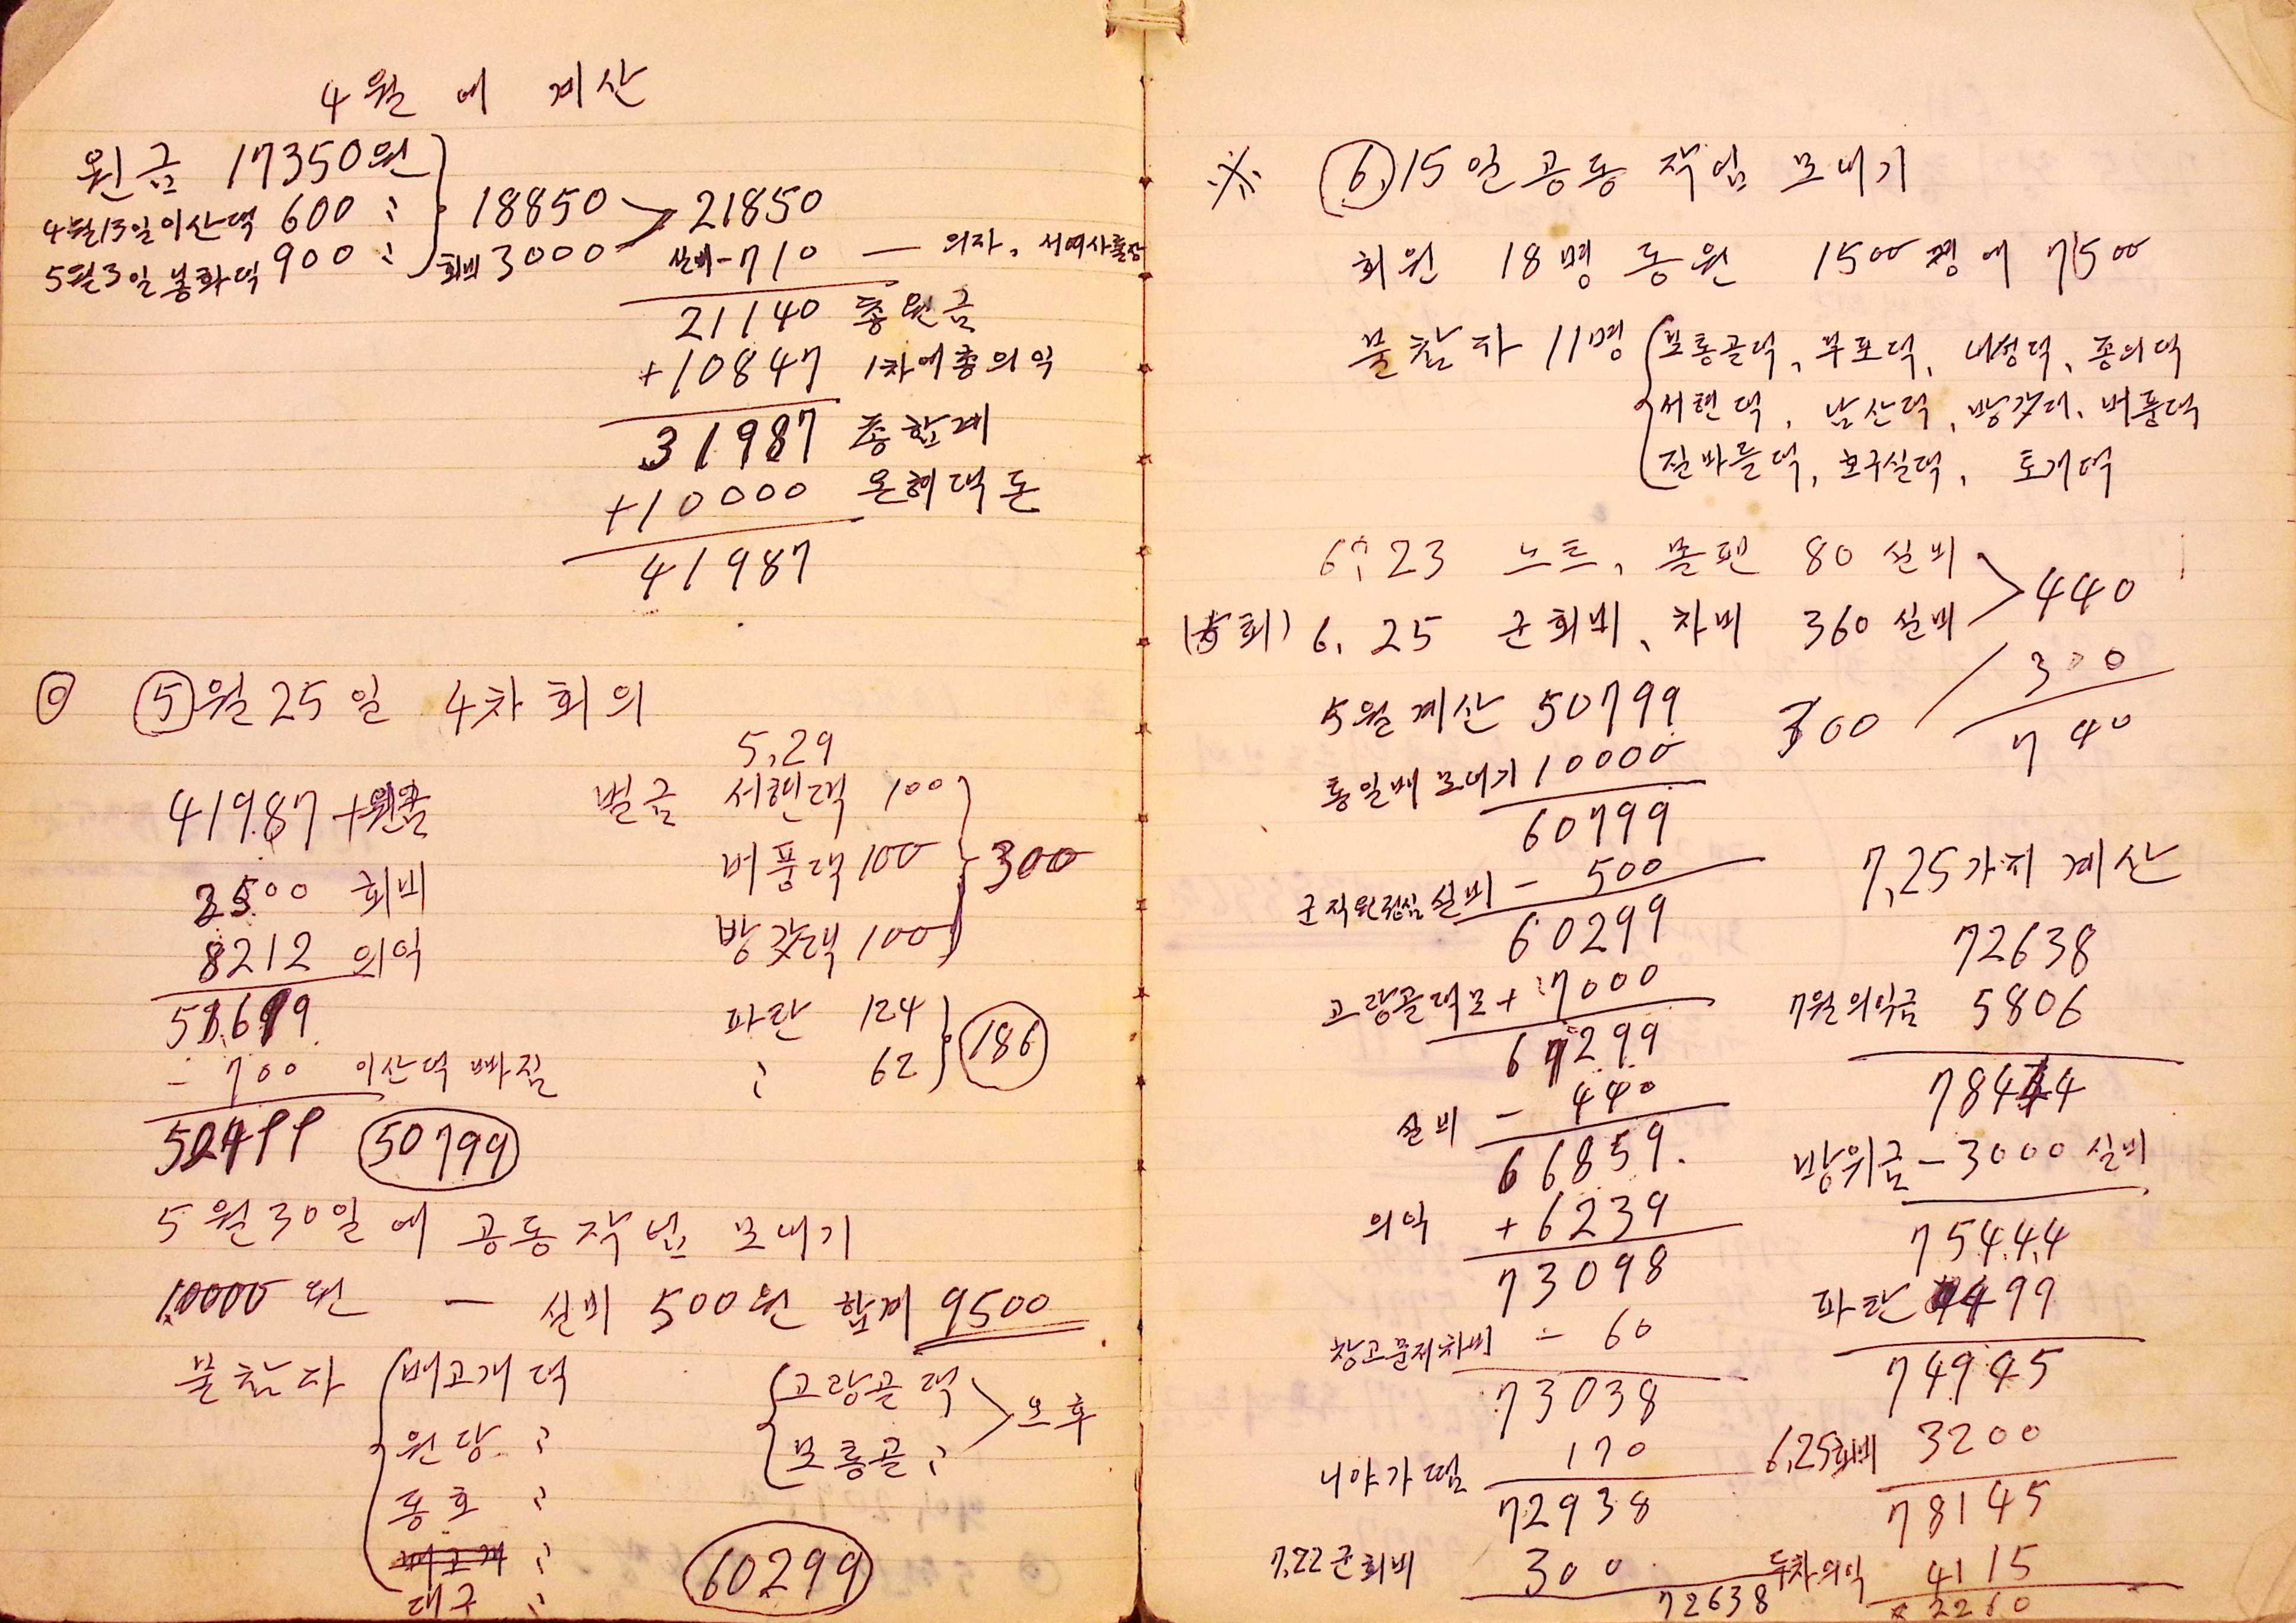 4월 에 계산
원금 17350원
4월13일 이산댁 600 〃 18850 21850
5월3일 봉화댁 900 〃 회비 3000 실비-710 — 의자, 서여사
21140 총원금
+10847 1차에 총의익
31987 총합계
+10000 온혜댁 돈
41987
◎ ⑤월25일 4차 회의
5,29
41987+원금 벌금 서현댁 100
회비 버풍댁 100 300
8212 의익 방갓댁 100
파란 124
- 700 이산댁 빠짐 〃 62 186
50799
5월30일에 공동작업 모내기
10000원 — 실비 500원 합계 9500
불참자 배고개댁 고랑골댁
원당 〃 모롱골 〃 오후
동호 〃
배고개 〃
대구 〃 60299
※ ⑥.15일 공동 작업 모내기
회원 18명 동원 1500평에 7500
불참자 11명 모롱골댁, 부포댁, 내성댁, 종의댁
서현댁, 남산댁, 방갓댁, 버풍댁
진바들댁, 호구실댁, 토개댁
6, 23 노트, 볼펜 80 실비
6, 25 군회비, 차비 360 실비 440
300
740
5월 계산 50799 300
통일벼 모내기 10000
60799
군직원점심 실비 - 500
60299
고랑골댁 모 + 7000
67299
실비 - 440
66859.
의익 +6239
73098
창고문제차비 - 60
73038
니야가 170
72938
7,22 군회비 300
72638
7,25가지 계산
72638
7월 의익금 5806
78444
방위금 -3000 실비
75444
파란 499
74945
6,25회비 3200
78145
두차의익 4115